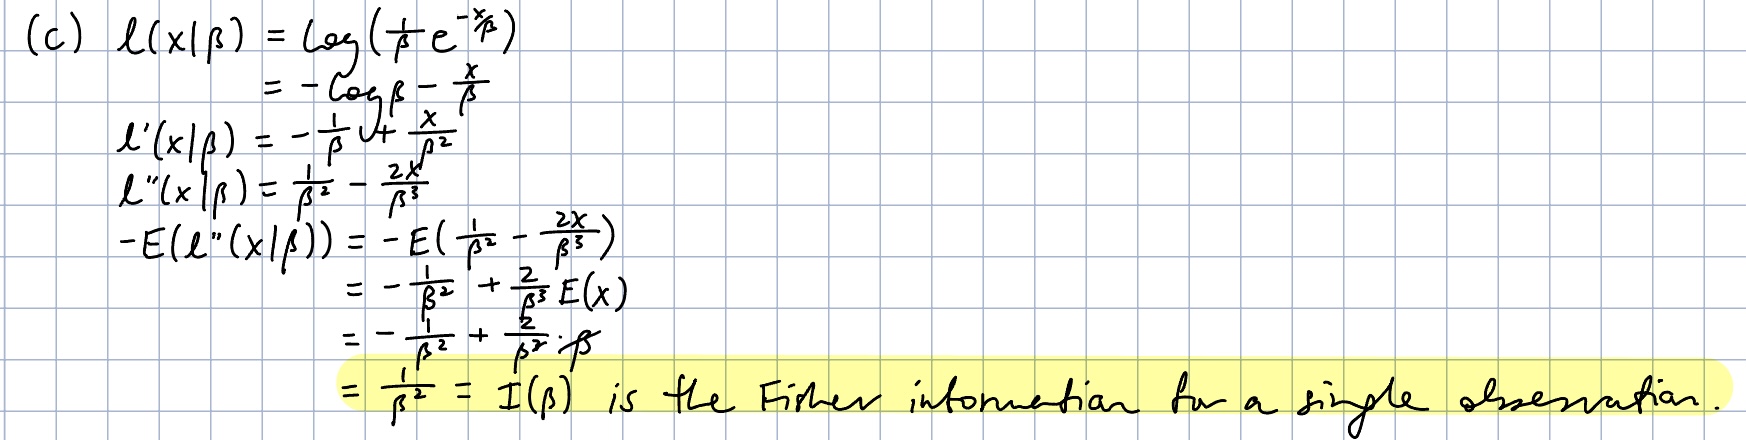 (c) l(x|β) = log(1/β e^{-x/β})
= -log β - x/β
l'(x|β) = -1/β + x/β²
l''(x|β) = 1/β² - 2x/β³
-E(l''(x|β)) = -E(1/β² - 2x/β³)
= -1/β² + 2/β³ E(x)
= -1/β² + 2/β² · β
= 1/β² = I(β) is the Fisher information for a single observation.